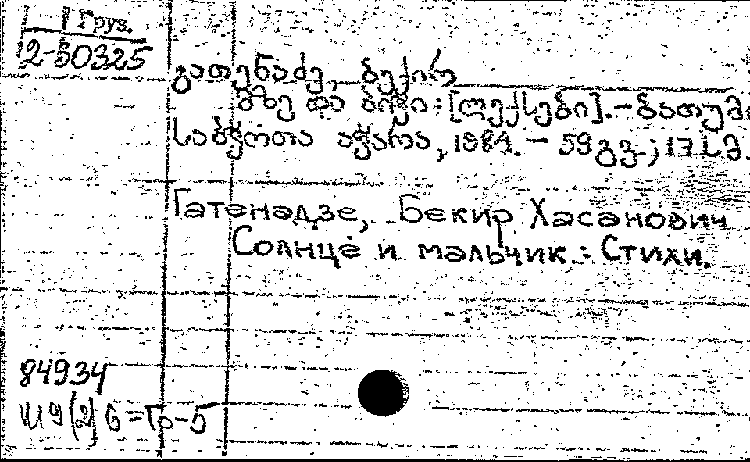 Груз.
2-50325
გათენაძე, ბექირ
მზე და ბიჭი : [ლექსები]. – ბათუმი
საბჭოთა აჭარა, 1981. – 59 გვ.; 17 სმ.
Гатенадзе, Бекир Хасанович
Солнце и мальчик. : Стихи.
84934
Ш9(2)6=Гр-5